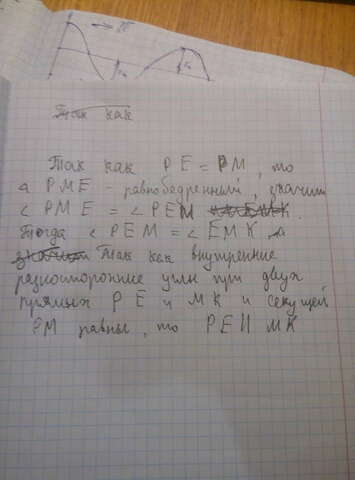 Так как
Так как PE = PM, то
△ PME - равнобедренный, значит
∠ PME = ∠ PEM
Тогда ∠ PEM = ∠ EMK, а
значит Так как внутренние
разносторонние углы при двух
прямых PE и MK и секущей
PM равны, то PE || MK